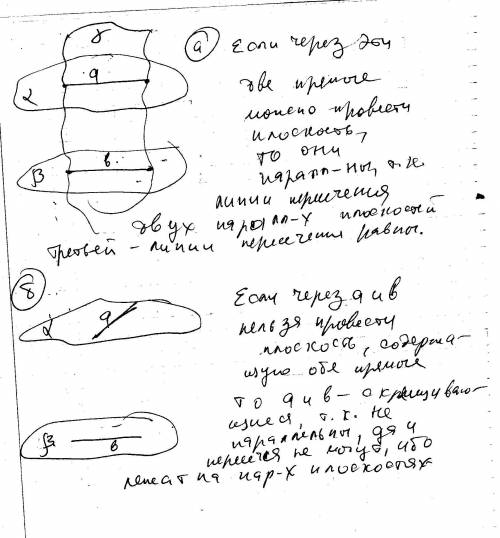 γ
а) Если через эти
α
а
две прямые
можно провести
плоскость,
то они
β
в
паралл-ны, т.к.
линии пересечения
двух паралл-х плоскостей
третьей - линии пересечения равны.
б)
Если через а и в
α
а
нельзя провести
плоскость, содержа-
щую обе прямые
то а и в - скрещиваю-
щиеся, т.к. не
β
в
параллельны, да и
пересечся не могут, ибо
лежат на пар-х плоскостях